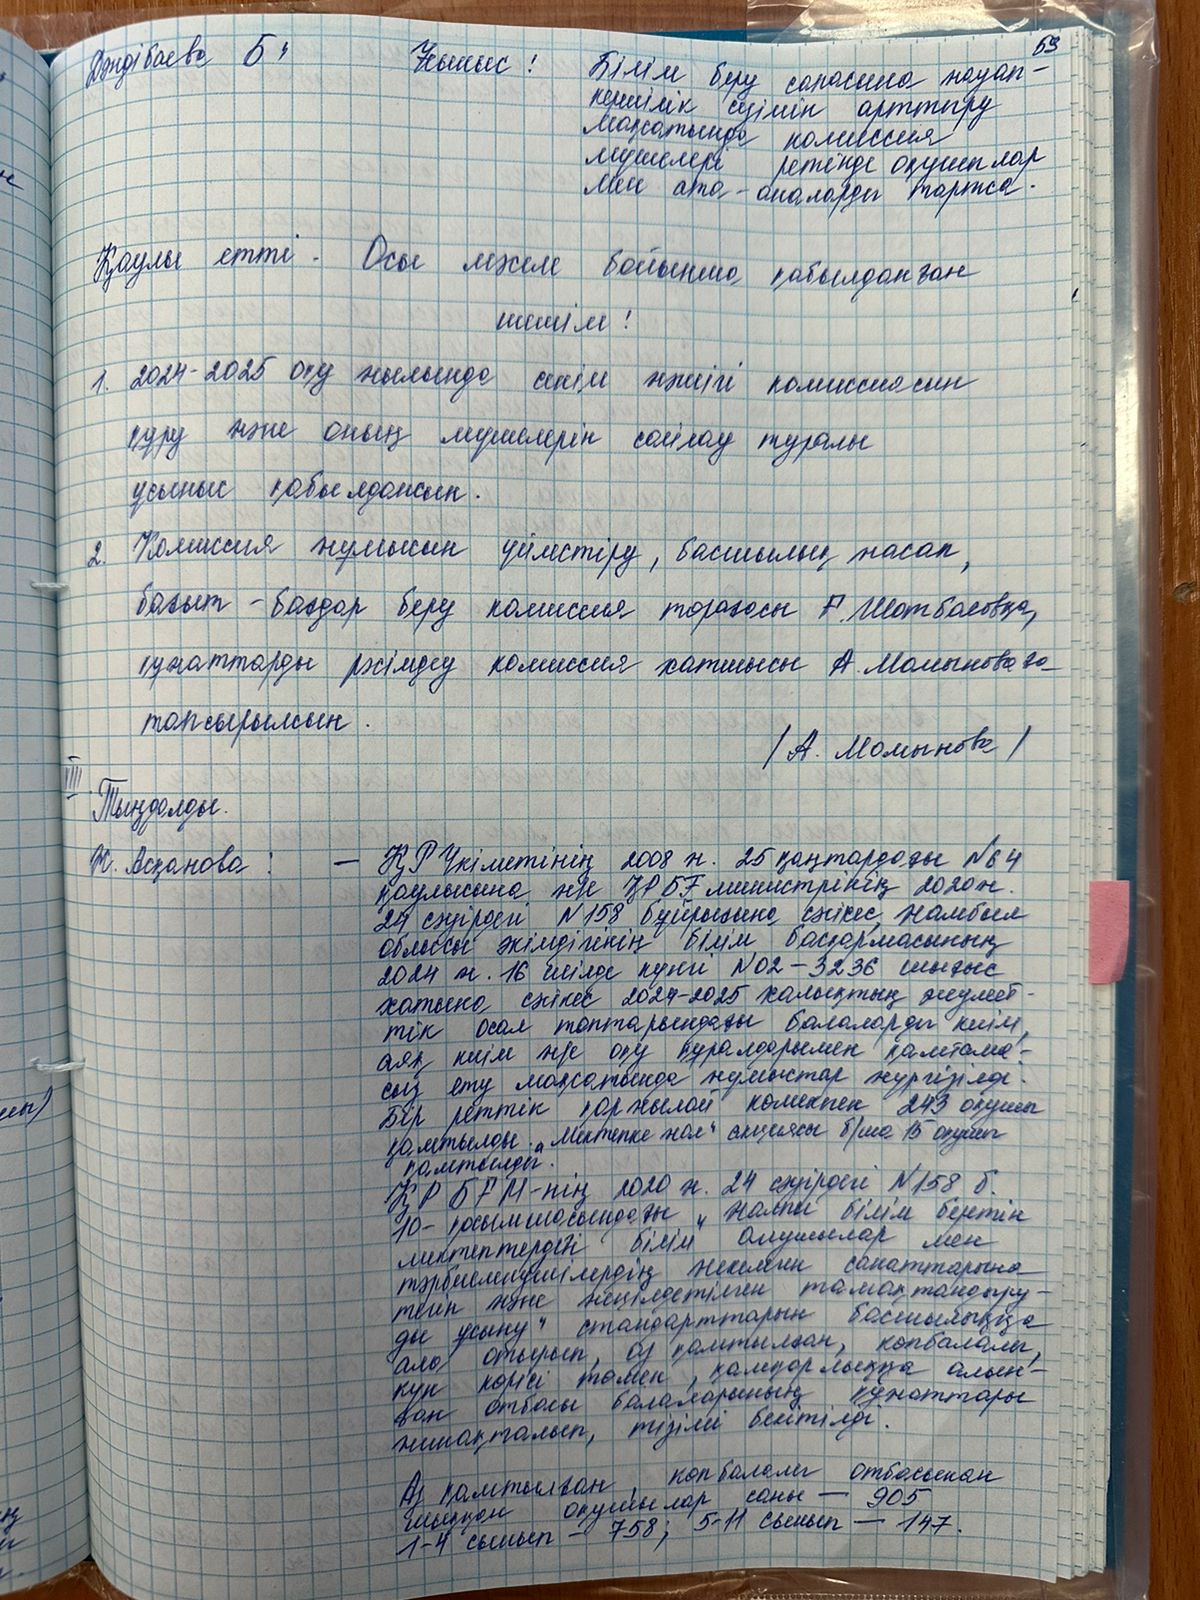 69
Дәндібаева Б: Ұсыныс: Білім беру сапасына жауап-
кершілік сезімін арттыру
мақсатында комиссия
мүшелері ретінде оқушылар
мен ата-аналарды тартса.
Қаулы етті. Осы мәселе бойынша қабылданған
шешім:
1. 2024-2025 оқу жылында әкім комиссиясын
құру және оның мүшелерін сайлау туралы
ұсыныс қабылдансын.
2. Комиссия жұмысын ұйымдастіру, басшылық жасап,
бағыт-бағдар беру комиссия торағасы Г. Шотбаевқа,
құжаттарды рәсімдеу комиссия хатшысы А. Момыноваға
тапсырылсын.
/ А. Момынова /
III
Тыңдалды.
Асқанова: – ҚР Үкіметінің 2008 ж. 25 қаңтардағы №64
қаулысына және ҚР БҒ министрінің 2020 ж.
24 сәуірдегі №158 бұйрығына сәйкес, Жамбыл
облысы әкімдігінің білім басқармасының
2024 ж. 16 шілде күнгі №02-3236 шығыс
хатына сәйкес 2024-2025 халықтың әлумет-
тік осал топтарындағы балаларды киім,
аяқ киім және оқу құралдарымен қамтама-
сыз ету мақсатында жұмыстар жүргізілді.
Бір реттік қаржылай көмекпен 243 оқушы
қамтылды. „Мектепке жол“ акциясы б/ша 15 оқушы
қамтылды.
ҚР БҒМ-нің 2020 ж. 24 сәуірдегі №158 б.
10-қосымшасындағы „Жалпы білім беретін
мектептердегі білім алушылар мен
тәрбиеленушілердің жекелеген санаттарына
тегін және жеңілдетілген тамақтандыру-
ды ұсыну“ стандарттарын басшылыққа
ала отырып, аз қамтылған, көпбалалы,
күн көрісі төмен, қамқорлыққа алын-
ған отбасы балаларының құжаттары
жинақталып, тізімі бекітілді.
Аз қамтылған, көпбалалы отбасынан
шыққан оқушылар саны – 905
1-4 сынып – 758; 5-11 сынып – 147.